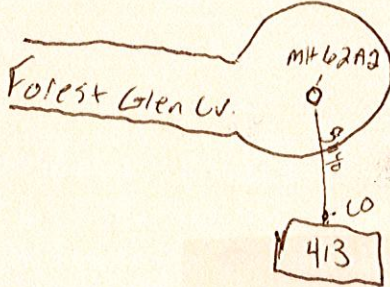 MH62A2
Forest Glen Cv.
CO
413